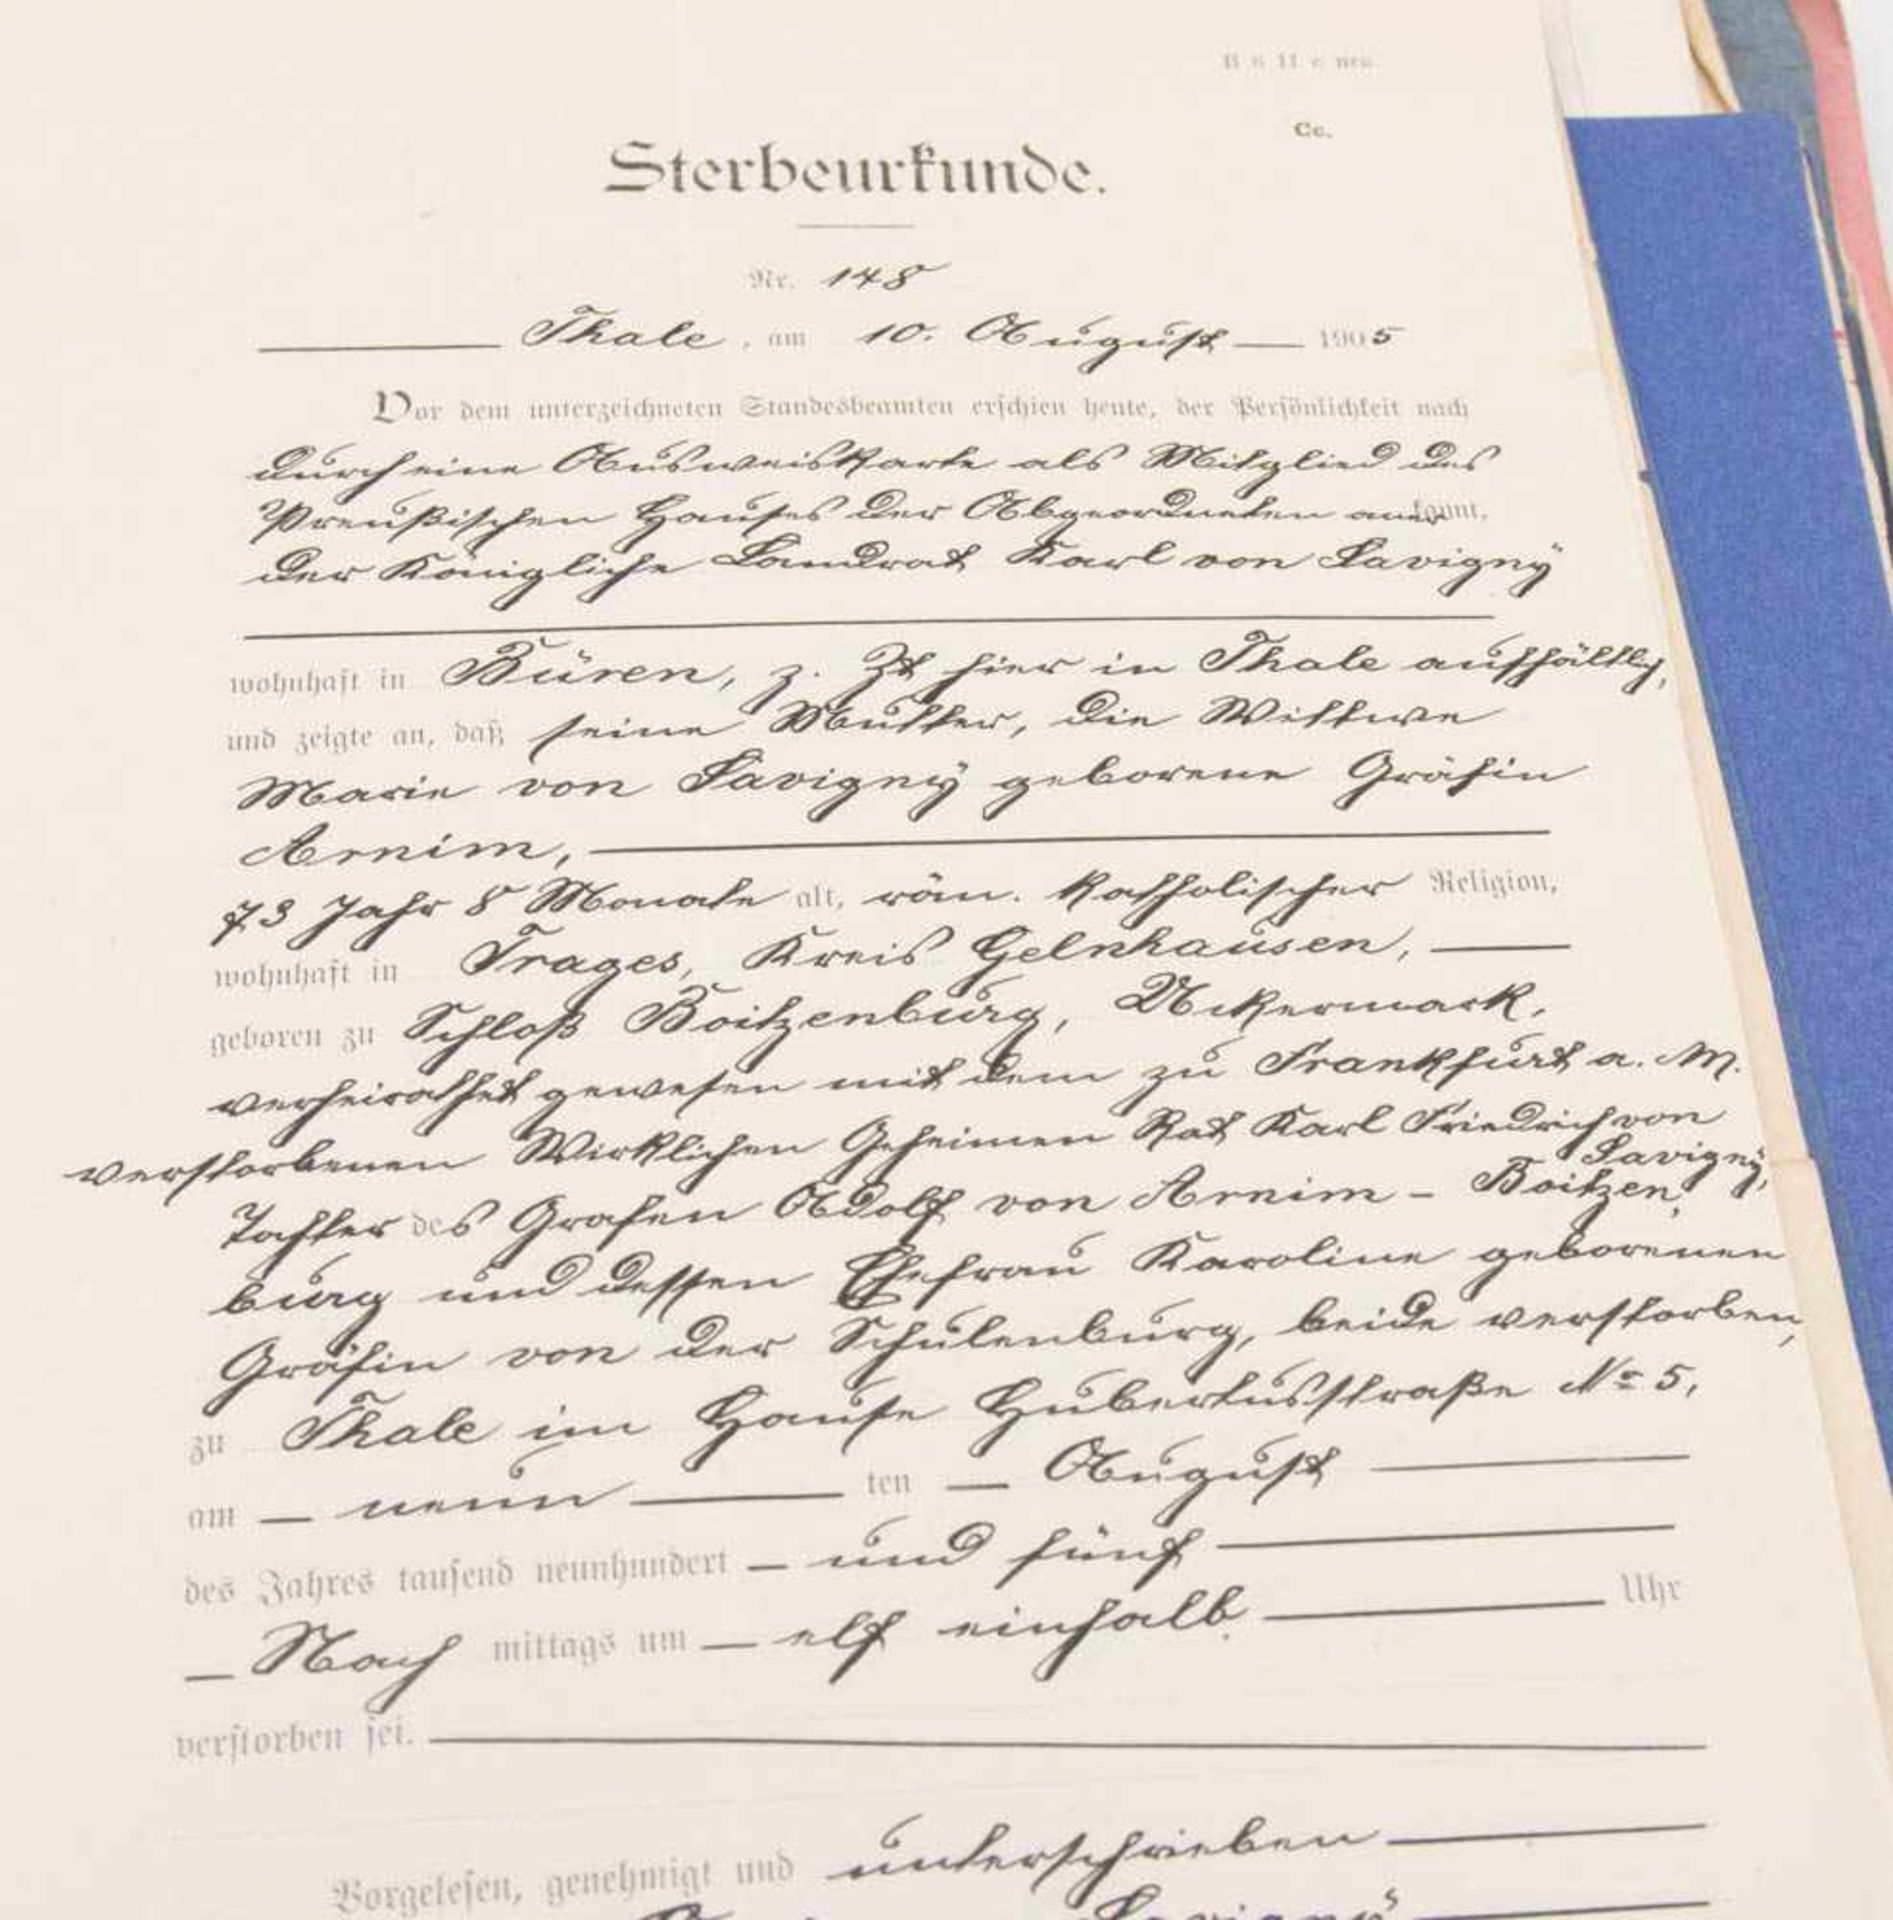 B 6 II c neu
Cc.
Sterbeurkunde.
Nr. 148
Thale, am 10. August 1905
Vor dem unterzeichneten Standesbeamten erschien heute, der Persönlichkeit nach
durch eine Ausweiskarte als Mitglied des
Preußischen Hauses der Abgeordneten anerkannt,
der Königliche Landrat Karl von Savigny
wohnhaft in Büren, z. Zt hier in Thale aufhältlich,
und zeigte an, daß seine Mutter, die Wittwe
Marie von Savigny geborene Gräfin
Arnim,
73 Jahr 8 Monate alt, röm. katholischer Religion,
wohnhaft in Trages, Kreis Gelnhausen,
geboren zu Schloß Boitzenburg, Uckermark,
verheirathet gewesen mit dem zu Frankfurt a. M.
verstorbenen Wirklichen Geheimen Rat Karl Friedrich von
Savigny,
Tochter des Grafen Adolf von Arnim - Boitzen
burg und dessen Ehefrau Karoline geborenen
Gräfin von der Schulenburg, beide verstorben,
zu Thale im Hause Hubertusstraße No 5,
am neun ten August
des Jahres tausend neunhundert und fünf
Nach mittags um elf einhalb Uhr
verstorben sei.
Vorgelesen, genehmigt und unterschrieben
Savigny